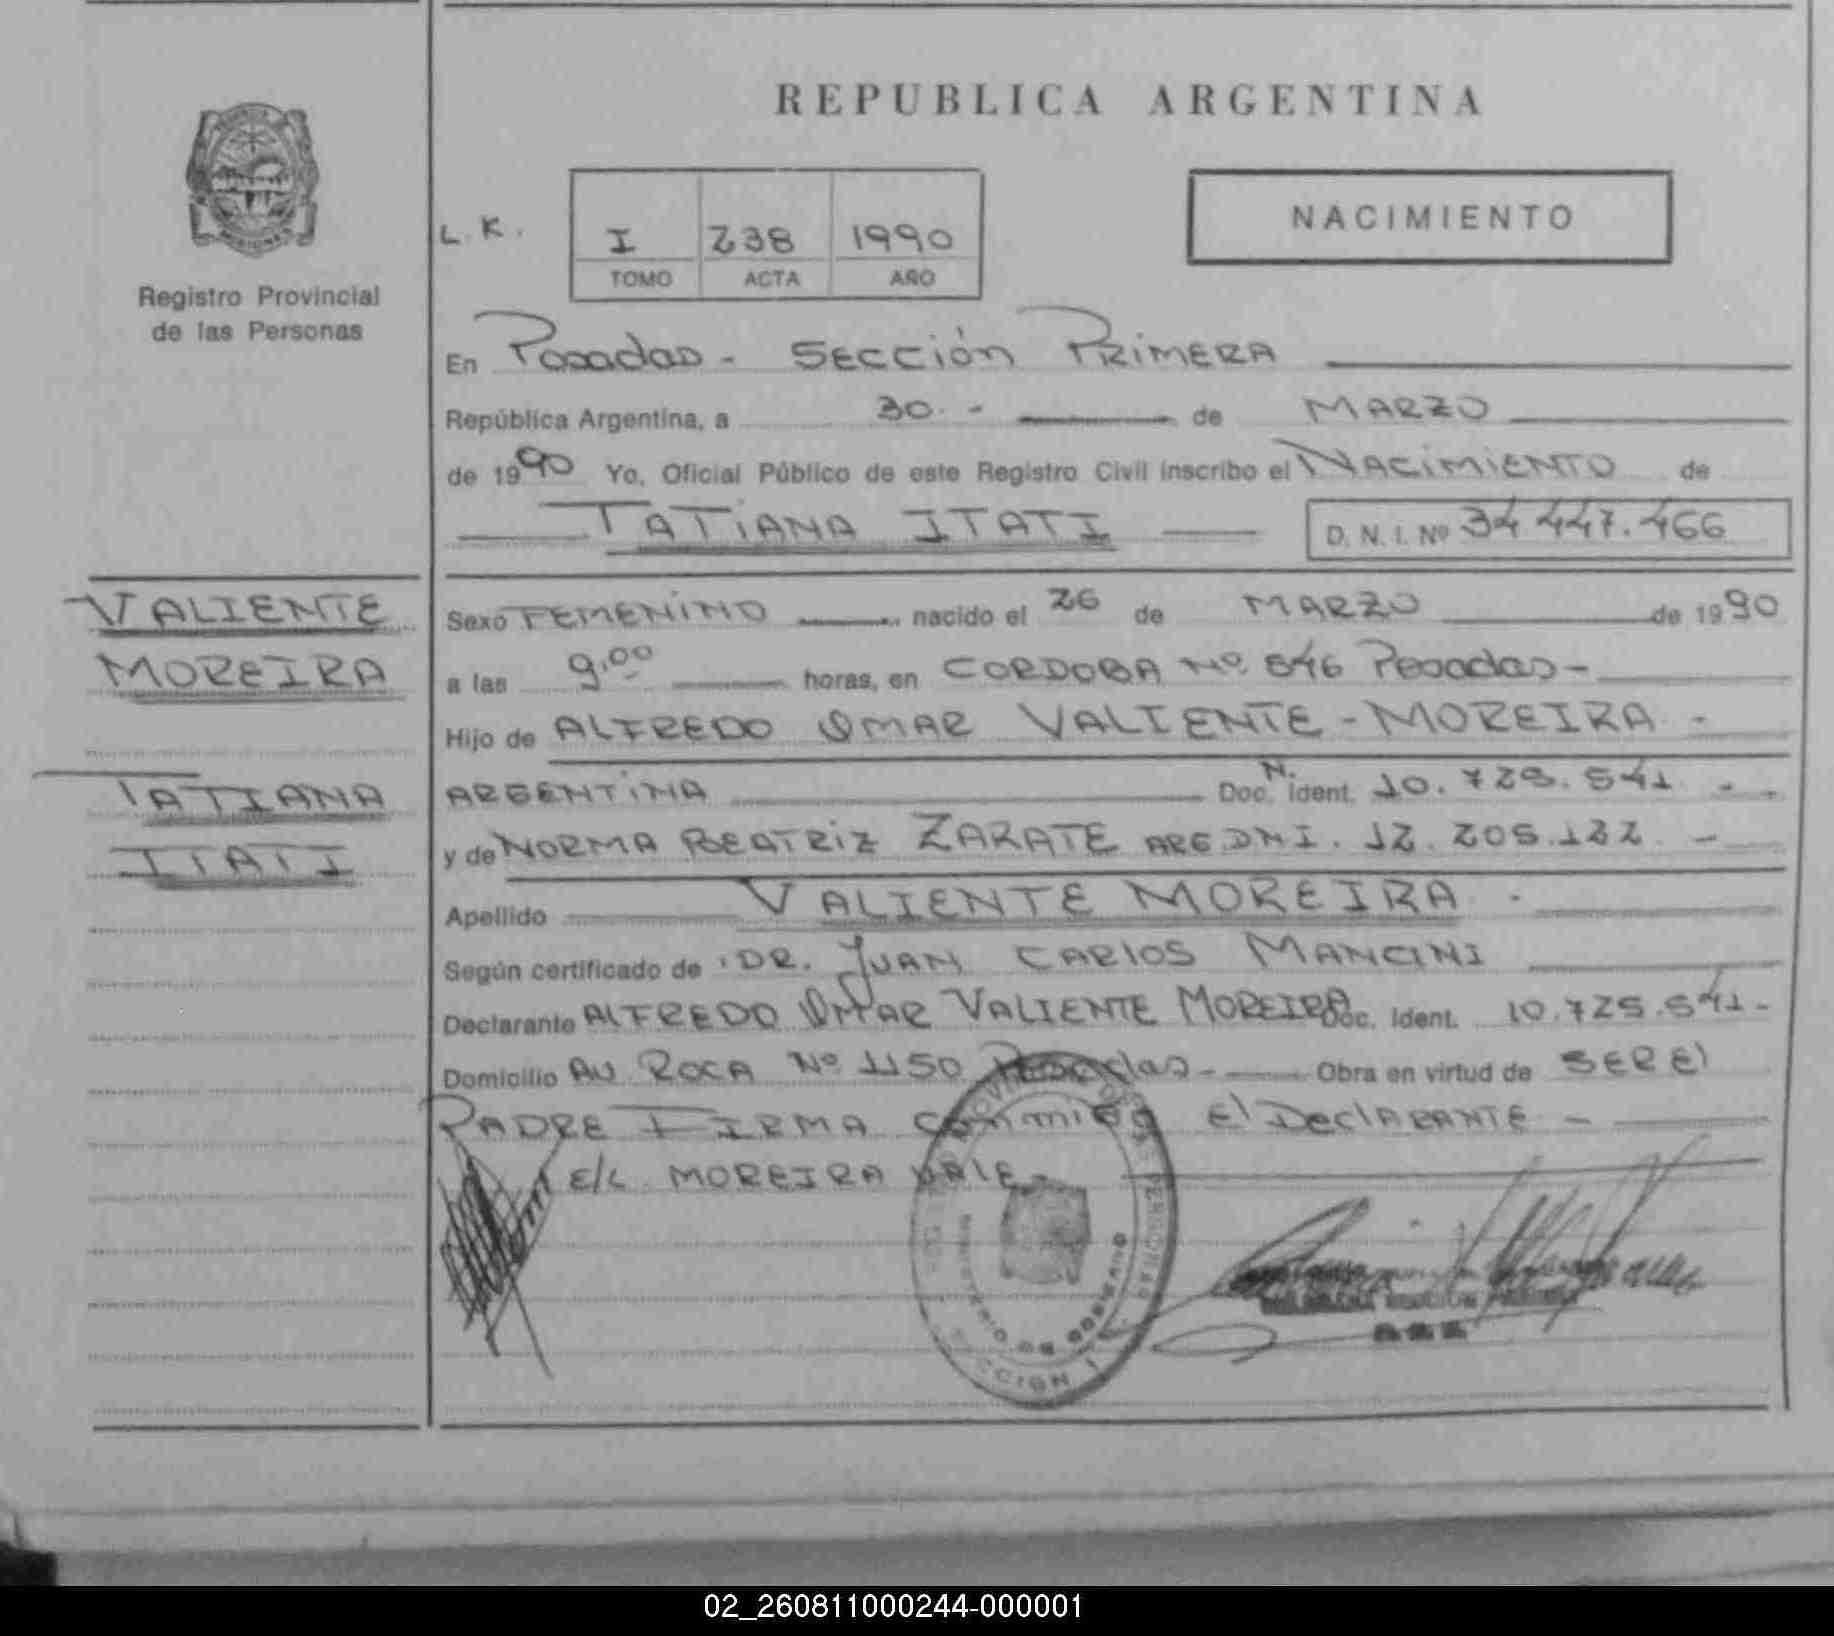 REPUBLICA ARGENTINA
MISIONES
Registro Provincial
de las Personas
L. K.
I 238 1990
TOMO ACTA AÑO
NACIMIENTO
En Posadas - Sección Primera
República Argentina, a 30. - de MARZO
de 1990 Yo, Oficial Público de este Registro Civil inscribo el NACIMIENTO de
TATIANA ITATI D. N. I. Nº 34 447.466
VALIENTE
MOREIRA
TATIANA
ITATI
Sexo FEMENINO nacido el 26 de MARZO de 1990
a las 9,00 horas, en CORDOBA Nº 846 Posadas -
Hijo de ALFREDO OMAR VALIENTE - MOREIRA -
ARGENTINA Doc. N. Ident. 10.725.541 - -
y de NORMA BEATRIZ ZARATE ARG. DNI. 12.205.122. -
Apellido VALIENTE MOREIRA -
Según certificado de DR. JUAN CARLOS MANCINI
Declarante ALFREDO OMAR VALIENTE MOREIRA Doc. Ident. 10.725.541 -
Domicilio AV ROCA Nº 1150 Posadas - Obra en virtud de SER El
PADRE FIRMA conmigo El DEClARANTE -
E/L MOREIRA VALE -
MINISTERIO DE GOBIERNO
SECCION 1
02_260811000244-000001